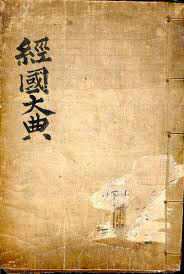 經國大典